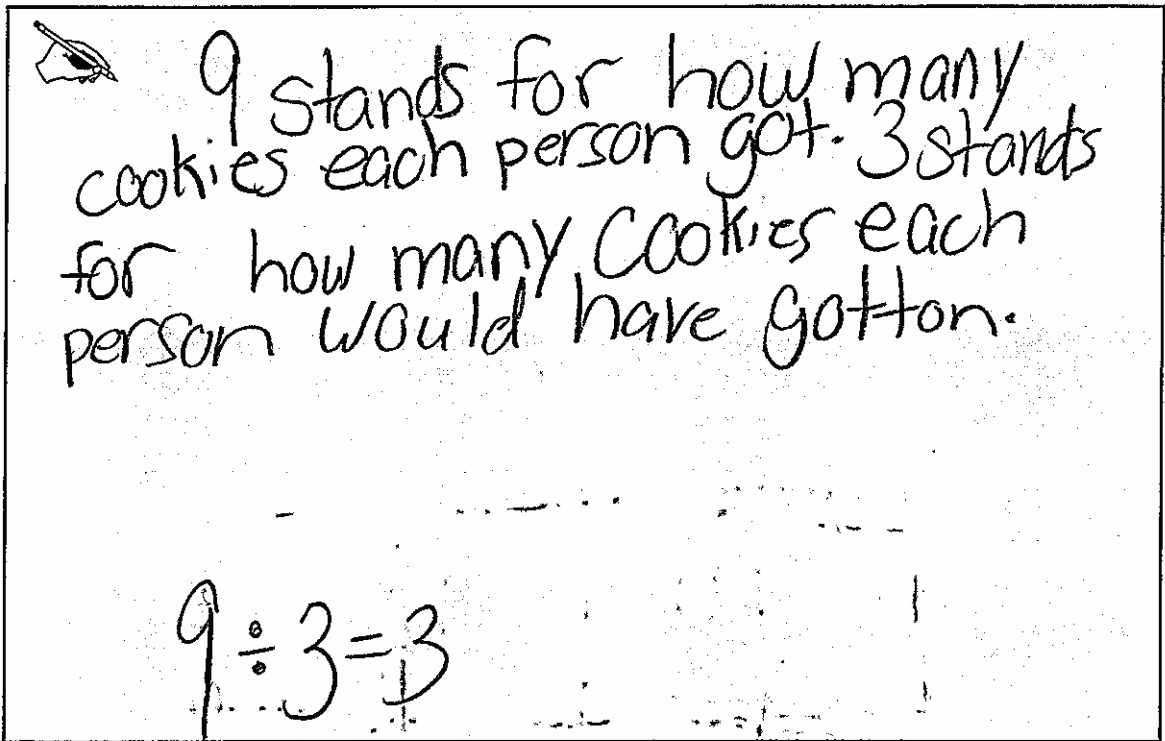 9 stands for how many
cookies each person got. 3 stands
for how many cookies each
person would have gotton.
9 ÷ 3 = 3